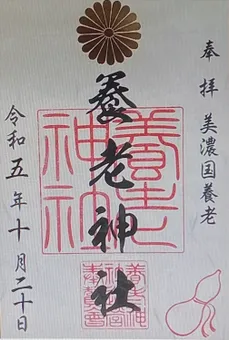 奉拝 美濃国養老
養老神社
養老神社
令和五年十月二十日